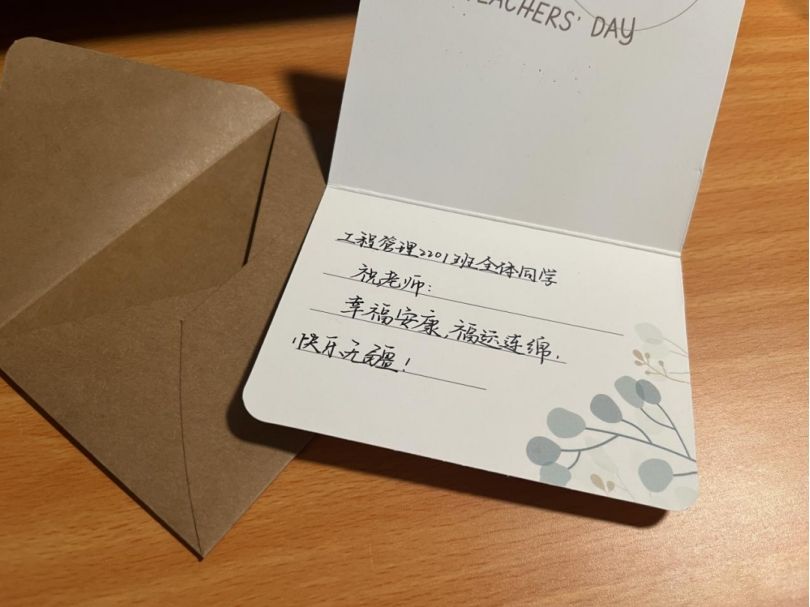 TEACHERS' DAY
工程管理2201班全体同学
祝老师：
幸福安康，福运连绵，
快乐无疆！